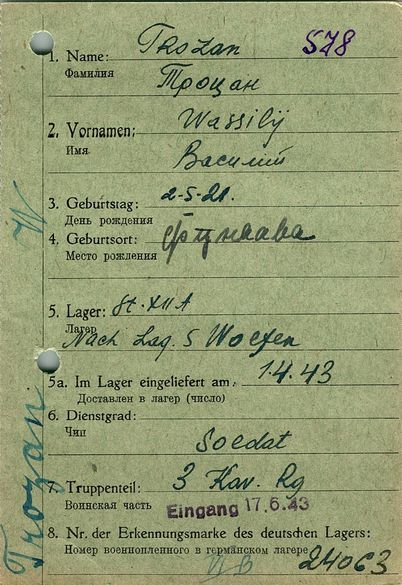 578
1. Name: Trozan
Фамилия Троцан
2. Vornamen: Wassilij
Имя Василий
3. Geburtstag: 2-5-21.
День рождения
4. Geburtsort:
Место рождения
5. Lager: St. XII A
Лагер
Nach Lag. S
5a. Im Lager eingeliefert am: 1.4.43
Доставлен в лагер (число)
6. Dienstgrad:
Чип Soldat
7. Truppenteil: 3 Kav. Rg
Воинская часть Eingang 17.6.43
8. Nr. der Erkennungsmarke des deutschen Lagers:
Номер военнопленного в германском лагере 24063
W
Trozan